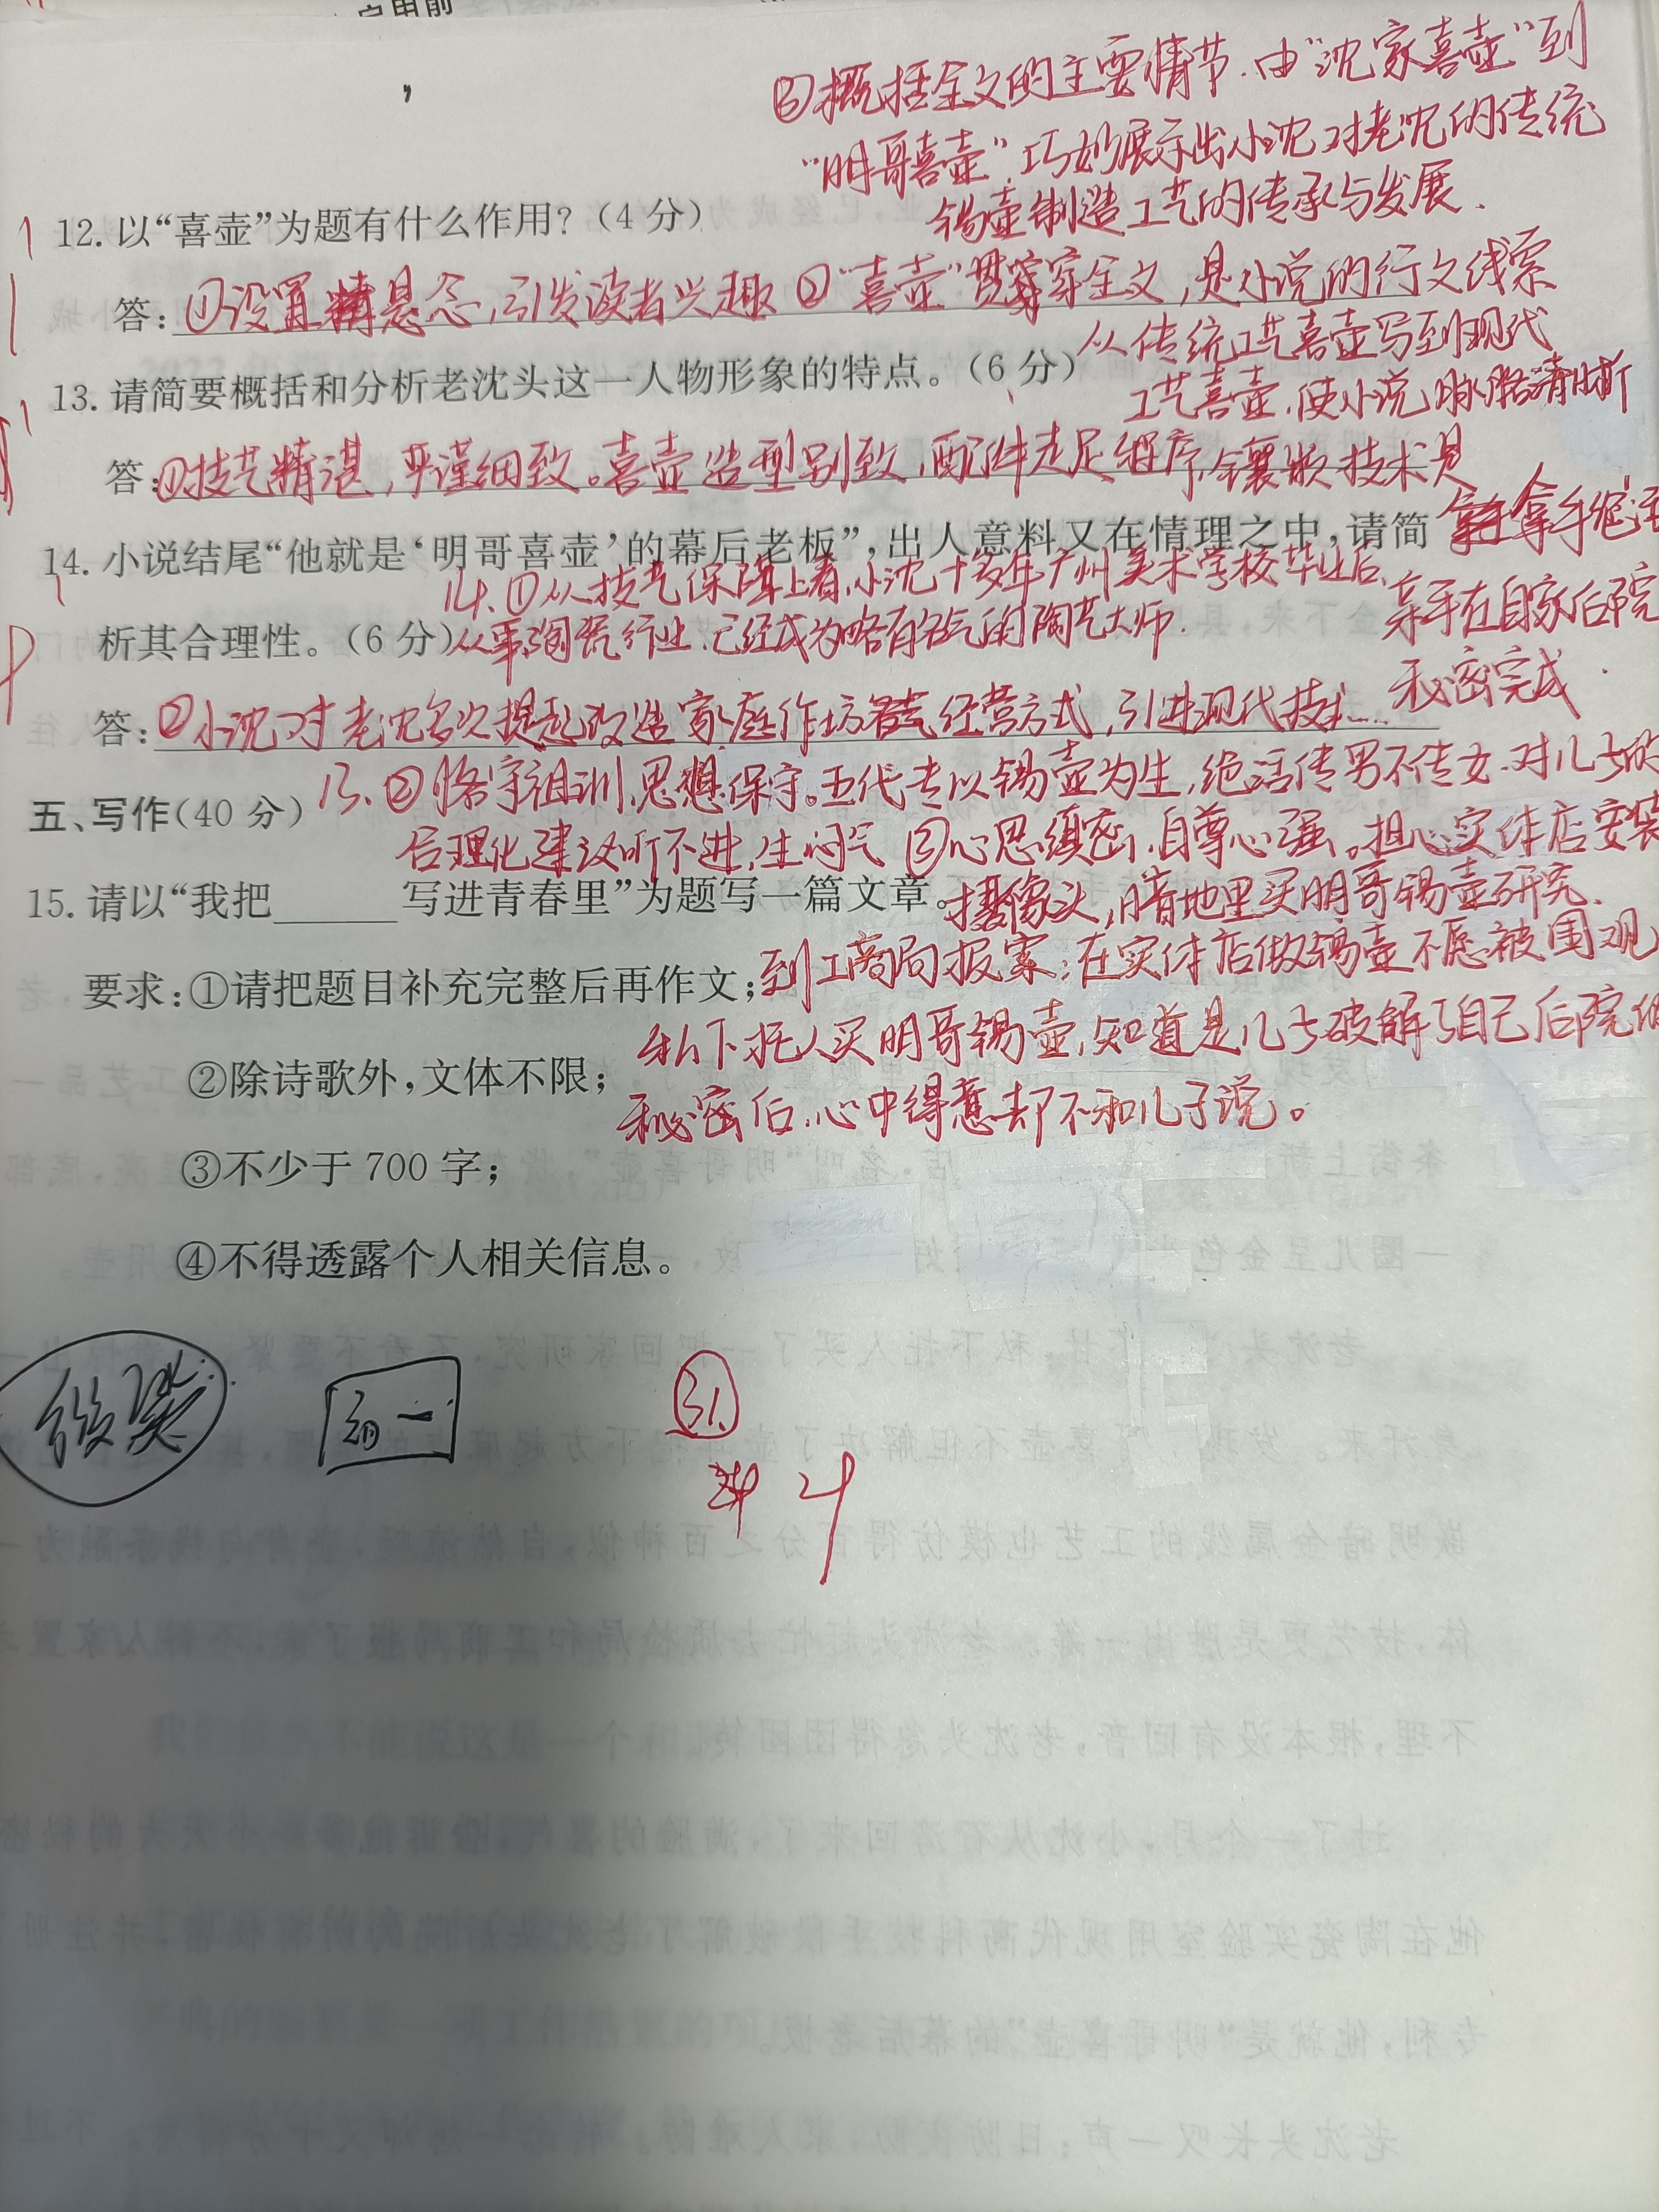 ③概括全文的主要情节.由“沈家喜壶”到
“明哥喜壶”.巧妙展示出小沈对老沈的传统
锡壶制造工艺的传承与发展.
12.以“喜壶”为题有什么作用?(4分)
答:①设置悬念,引发读者兴趣②“喜壶”贯穿全文,是小说的行文线索
从传统工艺喜壶写到现代
工艺喜壶.使小说脉胳清晰
13.请简要概括和分析老沈头这一人物形象的特点。(6分)
答:①技艺精湛,严谨细致。喜壶造型别致,配件走足程序,镶嵌技术是
拿手绝活
14.小说结尾“他就是‘明哥喜壶’的幕后老板”,出人意料又在情理之中,请简
14.①从技艺保障上看,小沈十多年广州美术学校毕业后、
析其合理性。(6分)
从事陶瓷行业.已经成为略有名气的陶艺大师.
亲手在自家后院
秘密完成.
答:②小沈对老沈多次提起改造家庭作坊经营方式,引进现代技术……
五、写作(40分)
13.②恪守祖训,思想保守。五代专以锡壶为生,绝活传男不传女.对儿子的
合理化建议听不进,生闷气③心思缜密,自尊心强。担心实体店安装
15.请以“我把______写进青春里”为题写一篇文章。
摄像头,暗地里买明哥锡壶研究.
要求:①请把题目补充完整后再作文;
到工商局报案;在实体店做锡壶不愿被围观
私下托人买明哥锡壶,知道是儿子破解了自己后院的
②除诗歌外,文体不限;
秘密后,心中得意却不和儿子说。
③不少于700字;
④不得透露个人相关信息。
31.
4